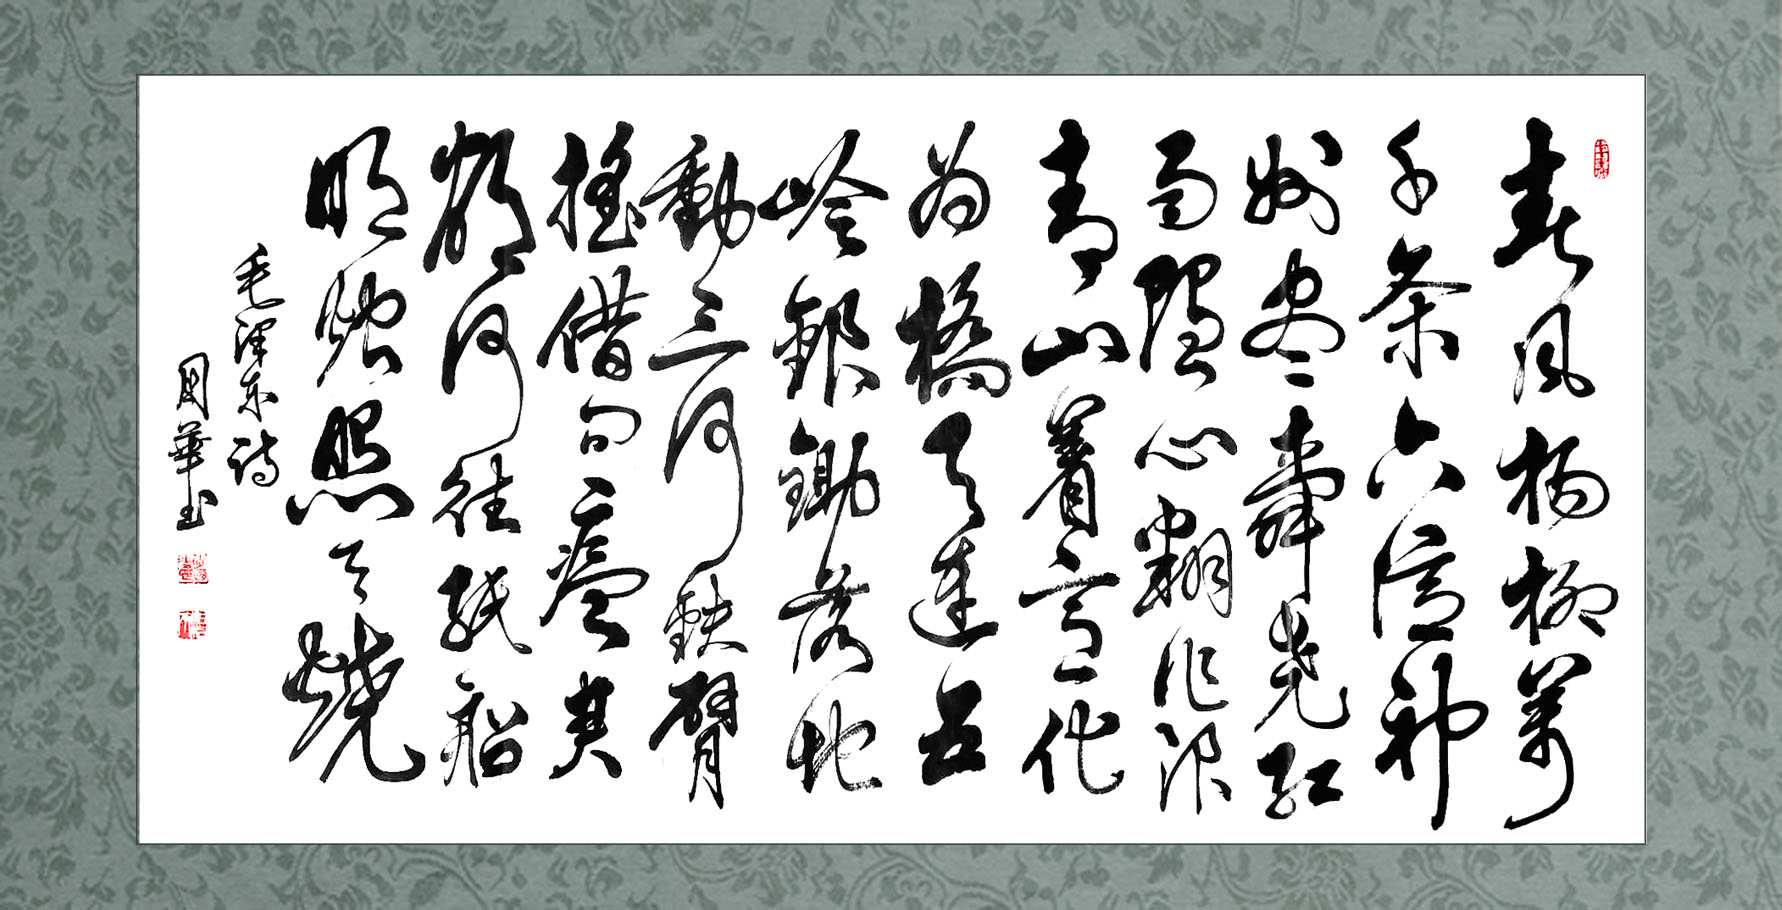 春风杨柳萬
千条六億神
州尽舜尧红
雨随心翻作浪
青山着意化
为橋天连五
岭銀鋤落地
動三河鉄臂
摇借问瘟君
欲何往纸船
明烛照天烧
毛泽东诗
国華书